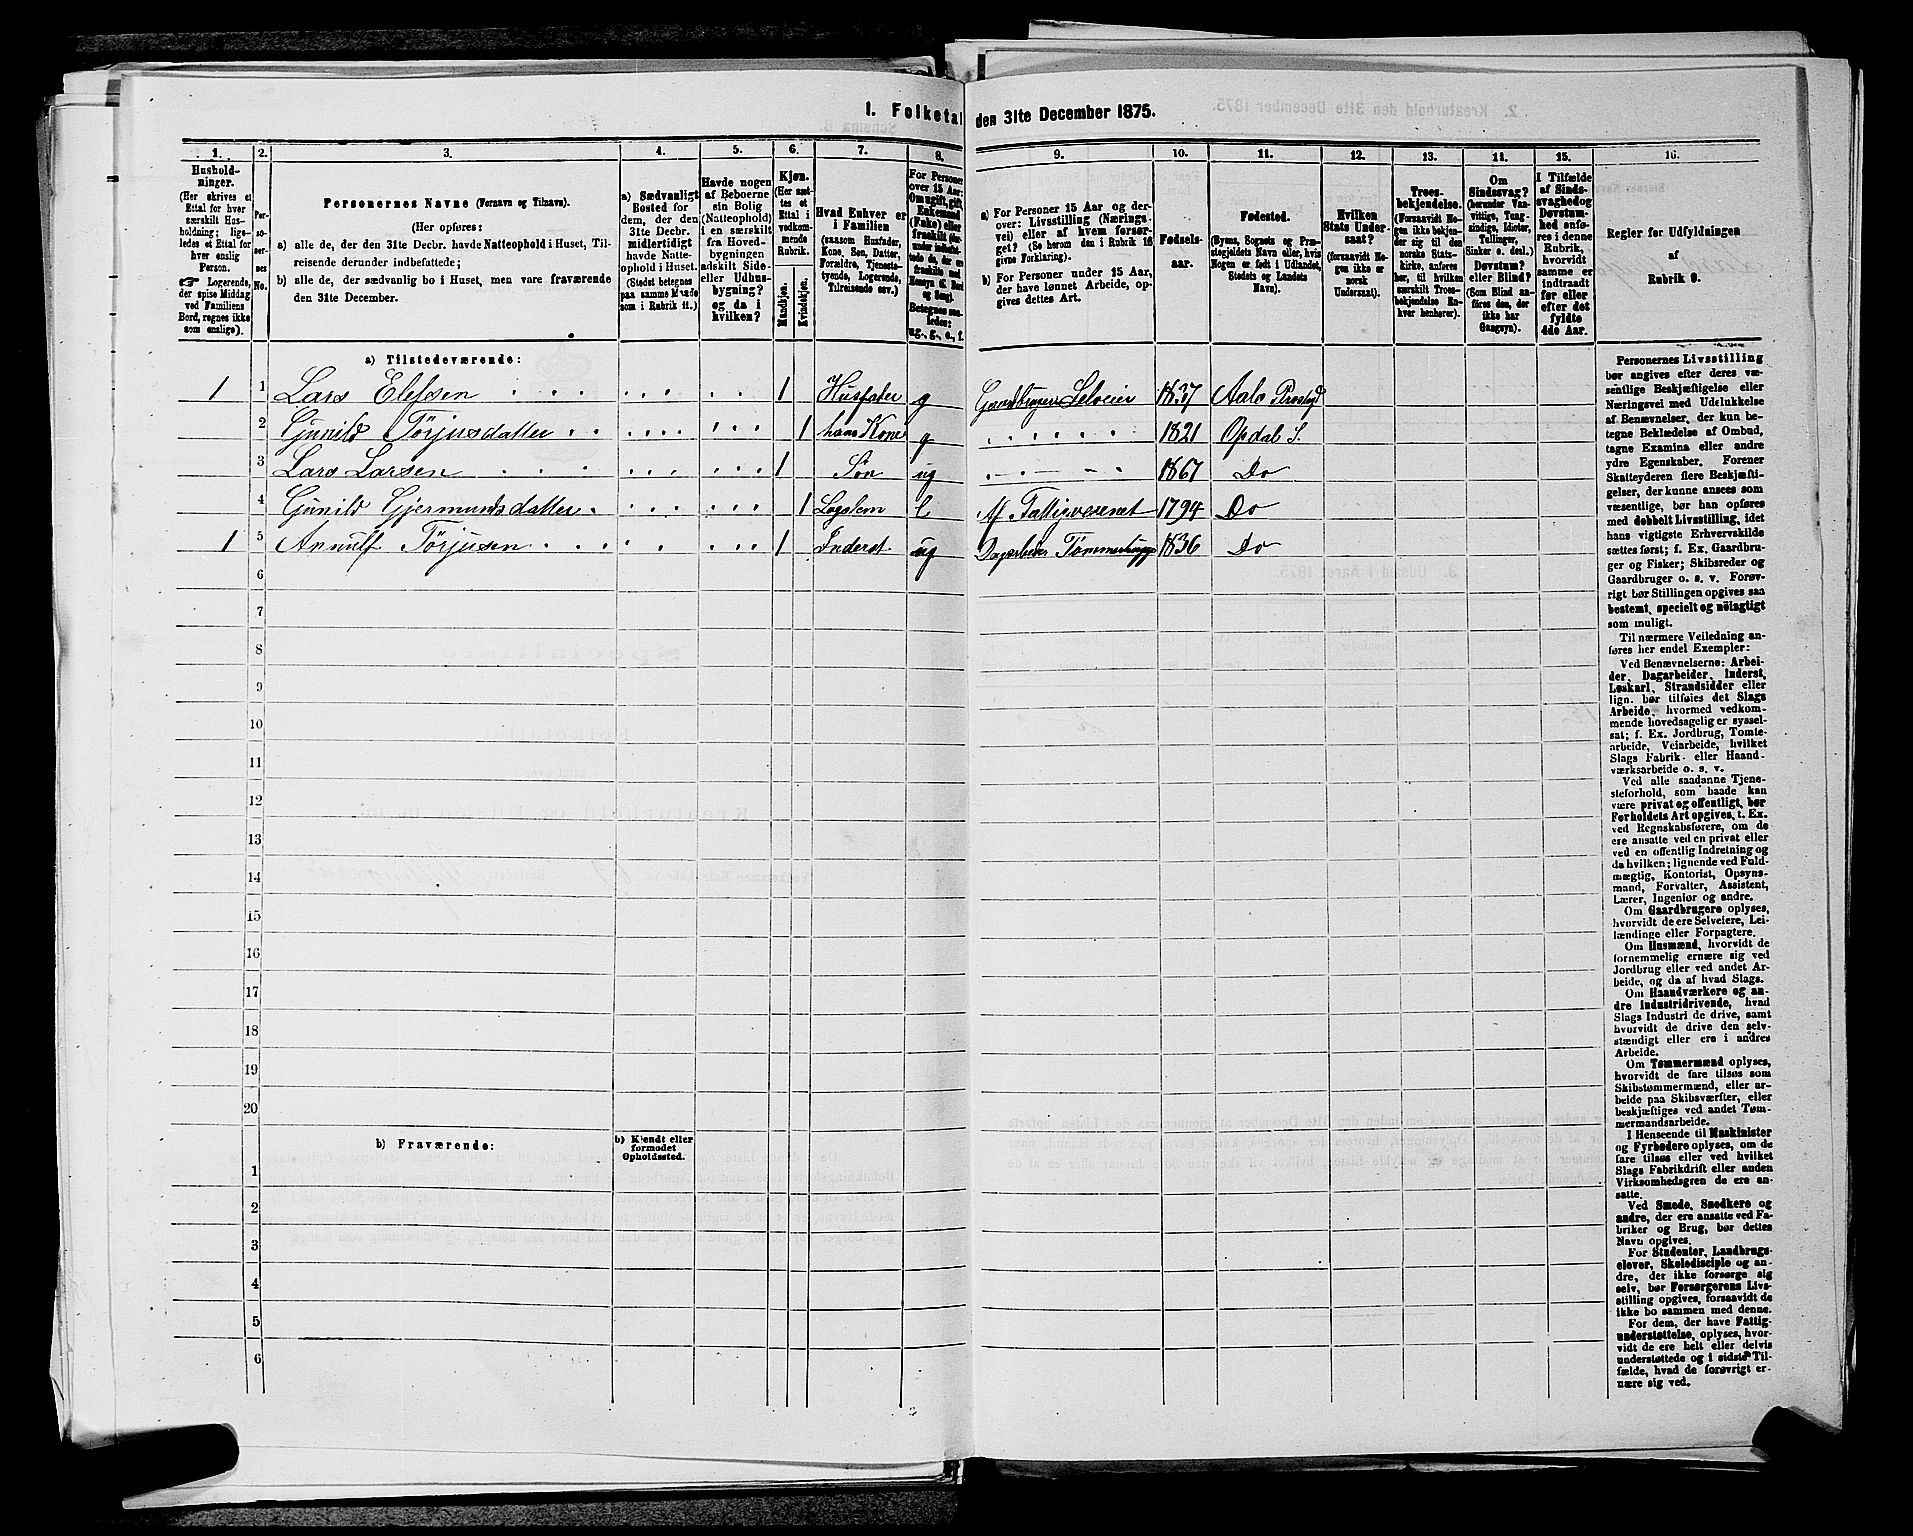 1. Folketal den 31te December 1875.
1. 2. 3. 4. 5. 6. 7. 8. 9. 10. 11. 12. 13. 14. 15. 16.
Husholdninger.
(Her skrives et
Ettal for hver
særskilt Husholdning;
ligeledes et Ettal for
hver enslig
Person.
Logerende,
der spise Middag
ved Familiens
Bord, regnes ikke
som enslige).
Personernes No.
Personernes Navne (Fornavn og Tilnavn).
(Her opføres:
a) alle de, der den 31te Decbr. havde Natteophold i Huset, Tilreisende derunder indbefattede;
b) alle de, der sædvanlig bo i Huset, men vare fraværende den 31te December.
a) Sædvanligt
Bosted for
dem, der den
31te Decbr.
midlertidigt
havde Natteophold i Huset.
(Stedet betegnes
paa samme Maade
som i Rubrik 11.)
Havde nogen
af Beboerne
sin Bolig
(Natteophold)
i en særskilt
fra Hovedbygningen
adskilt Side-
eller Udhusbygning?
og da i
hvilken?
Kjøn.
(Her sættes et
Ettal i
vedkommende
Rubrik.
Mandkjøn.
Kvindekjøn.
Hvad Enhver er
i Familien
(saasom Husfader,
Kone, Søn, Datter,
Forældre, Tjenestetyende, Logerende,
Tilreisende osv.)
For Personer
over 15 Aar:
Om ugift, gift,
Enkemand
(Enke) eller
fraskilt
Betegnes saaledes:
ug., g., e., f.
a) For Personer 15 Aar og derover: Livsstilling (Næringsvei) eller af hvem forsørget? (Se herom den i Rubrik 16
givne Forklaring).
b) For Personer under 15 Aar,
der have lønnet Arbeide, opgives dettes Art.
Fødselsaar.
Fødested.
(Byens, Sognets og Præstegjeldets Navn eller, hvis
Nogen er født i Udlandet,
Stedets og Landets
Navn).
Hvilken
Stats Undersaat?
(forsaavidt Nogen ikke er
norsk
Undersaat).
Troesbekjendelse.
(Forsaavidt Nogen ikke bekjender sig til den
norske Statskirke, anføres
her, til hvilken
særskilt Troesbekjendelse Enhver henhører).
Om
Sindssvag?
(herunder Vanvittige, Tungsindige, Idioter,
Tullinger,
Sinker o. desl.)
Døvstum?
eller Blind?
(Som Blind anføres den, der
ikke har
Gangsyn).
I Tilfælde
af Sindssvaghed og
Døvstumhed anføres i denne
Rubrik,
hvorvidt
samme er
indtraadt
før eller
efter det
fyldte
4de Aar.
Regler for Udfyldningen
af
Rubrik 9.
a) Tilstedeværende:
1 1 Lars Elefsen 1 Husfader g Gaardbruger Selveier 1837 Aals Prstgjd
2 Gunild Tørjusdatter 1 hans Kone g 1821 Opdal S.
3 Lars Larsen 1 Søn ug 1867 Do
4 Gunild Gjermundsdatter 1 Logslem e Af Fattigvesenet 1794 Do
1 5 Annulf Tørjusen 1 Inderst ug Dagarbeider Tømmerhugger 1836 Do
6
7
8
9
10
11
12
13
14
15
16
17
18
19
20
b) Fraværende:
b) Kjendt eller
formodet
Opholdssted.
1
2
3
4
5
6
Personernes Livsstilling
bør angives efter deres væsentlige Beskjæftigelse eller
Næringsvei med Udelukkelse
af Benævnelser, der kun betegne Beklædelse af Ombud,
tagne Examina eller andre
ydre Egenskaber. Forener
Skatteyderen flere Beskjæftigelser, der kunne ansees som
væsentlige, bør han opføres
med dobbelt Livsstilling, idet
hans vigtigste Erhvervskilde
sættes først; f. Ex. Gaardbruger og Fisker; Skibsreder og
Gaardbruger o. s. v. Forøvrigt bør Stillingen opgives saa
bestemt, specielt og nöiagtigt
som muligt.
Til nærmere Veiledning anføres her endel Exempler:
Ved Benævnelserne: Arbeider, Dagarbeider, Inderst,
Løskarl, Strandsidder eller
lign. bør tilføies det Slags
Arbeide, hvormed vedkommende hovedsagelig er sysselsat; f. Ex. Jordbrug, Tomtearbeide, Veiarbeide, hvilket
Slags Fabrik- eller Haandværksarbeide o. s. v.
Ved alle saadanne Tjenesteforhold, som baade kan
være privat og offentligt, bør
Forholdets Art opgives, t. Ex.
ved Regnskabsførere, om de
ere ansatte ved en privat eller
ved en offentlig Indretning og
da hvilken; lignende ved Fuldmægtig, Kontorist, Opsynsmand, Forvalter, Assistent,
Lærer, Ingeniør og andre.
Om Gaardbrugere oplyses,
hvorvidt de ere Selveiere, Leilændinge eller Forpagtere.
Om Husmænd, hvorvidt de
fornemmelig ernære sig ved
Jordbrug eller ved andet Arbeide, og da af hvad Slags.
Om Haandværkere og andre Industridrivende, hvad
Slags Industri de drive, samt
hvorvidt de drive den selvstændigt eller ere i andres
Arbeide.
Om Tømmermænd oplyses,
hvorvidt de fare tilsøs som
Skibstømmermænd, eller arbeide paa Skibsværfter, eller
beskjæftiges ved andet Tømmermandsarbeide.
I Henseende til Maskinister
og Fyrbødere oplyses, om de
fare tilsøs eller ved hvilket
Slags Fabrikdrift eller anden
Virksomhedsgren de ere ansatte.
Ved Smede, Snedkere og
andre, der ere ansatte ved Fabriker og Brug, bør dettes
Navn opgives.
For Studenter, Landbrugselever, Skoledisciple og andre, der ikke forsørge sig
selv, bør Forsørgerens Livsstilling opgives, forsaavidt de
ikke bo sammen med denne.
For dem, der have Fattigunderstøttelse, oplyses, hvorvidt de ere helt eller delvis
understøttede og i sidste Tilfælde, hvad de forøvrigt ernære sig ved.